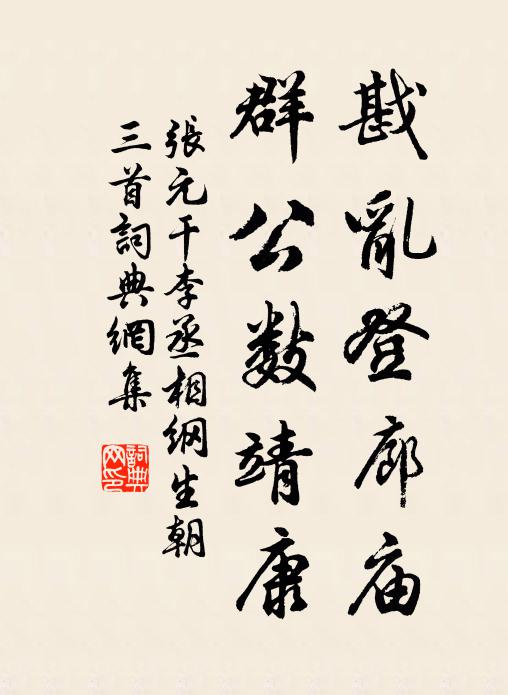 戡亂登廊庙
群公数靖康
張元干李丞相纲生朝
三首詞典網集
詞典网印